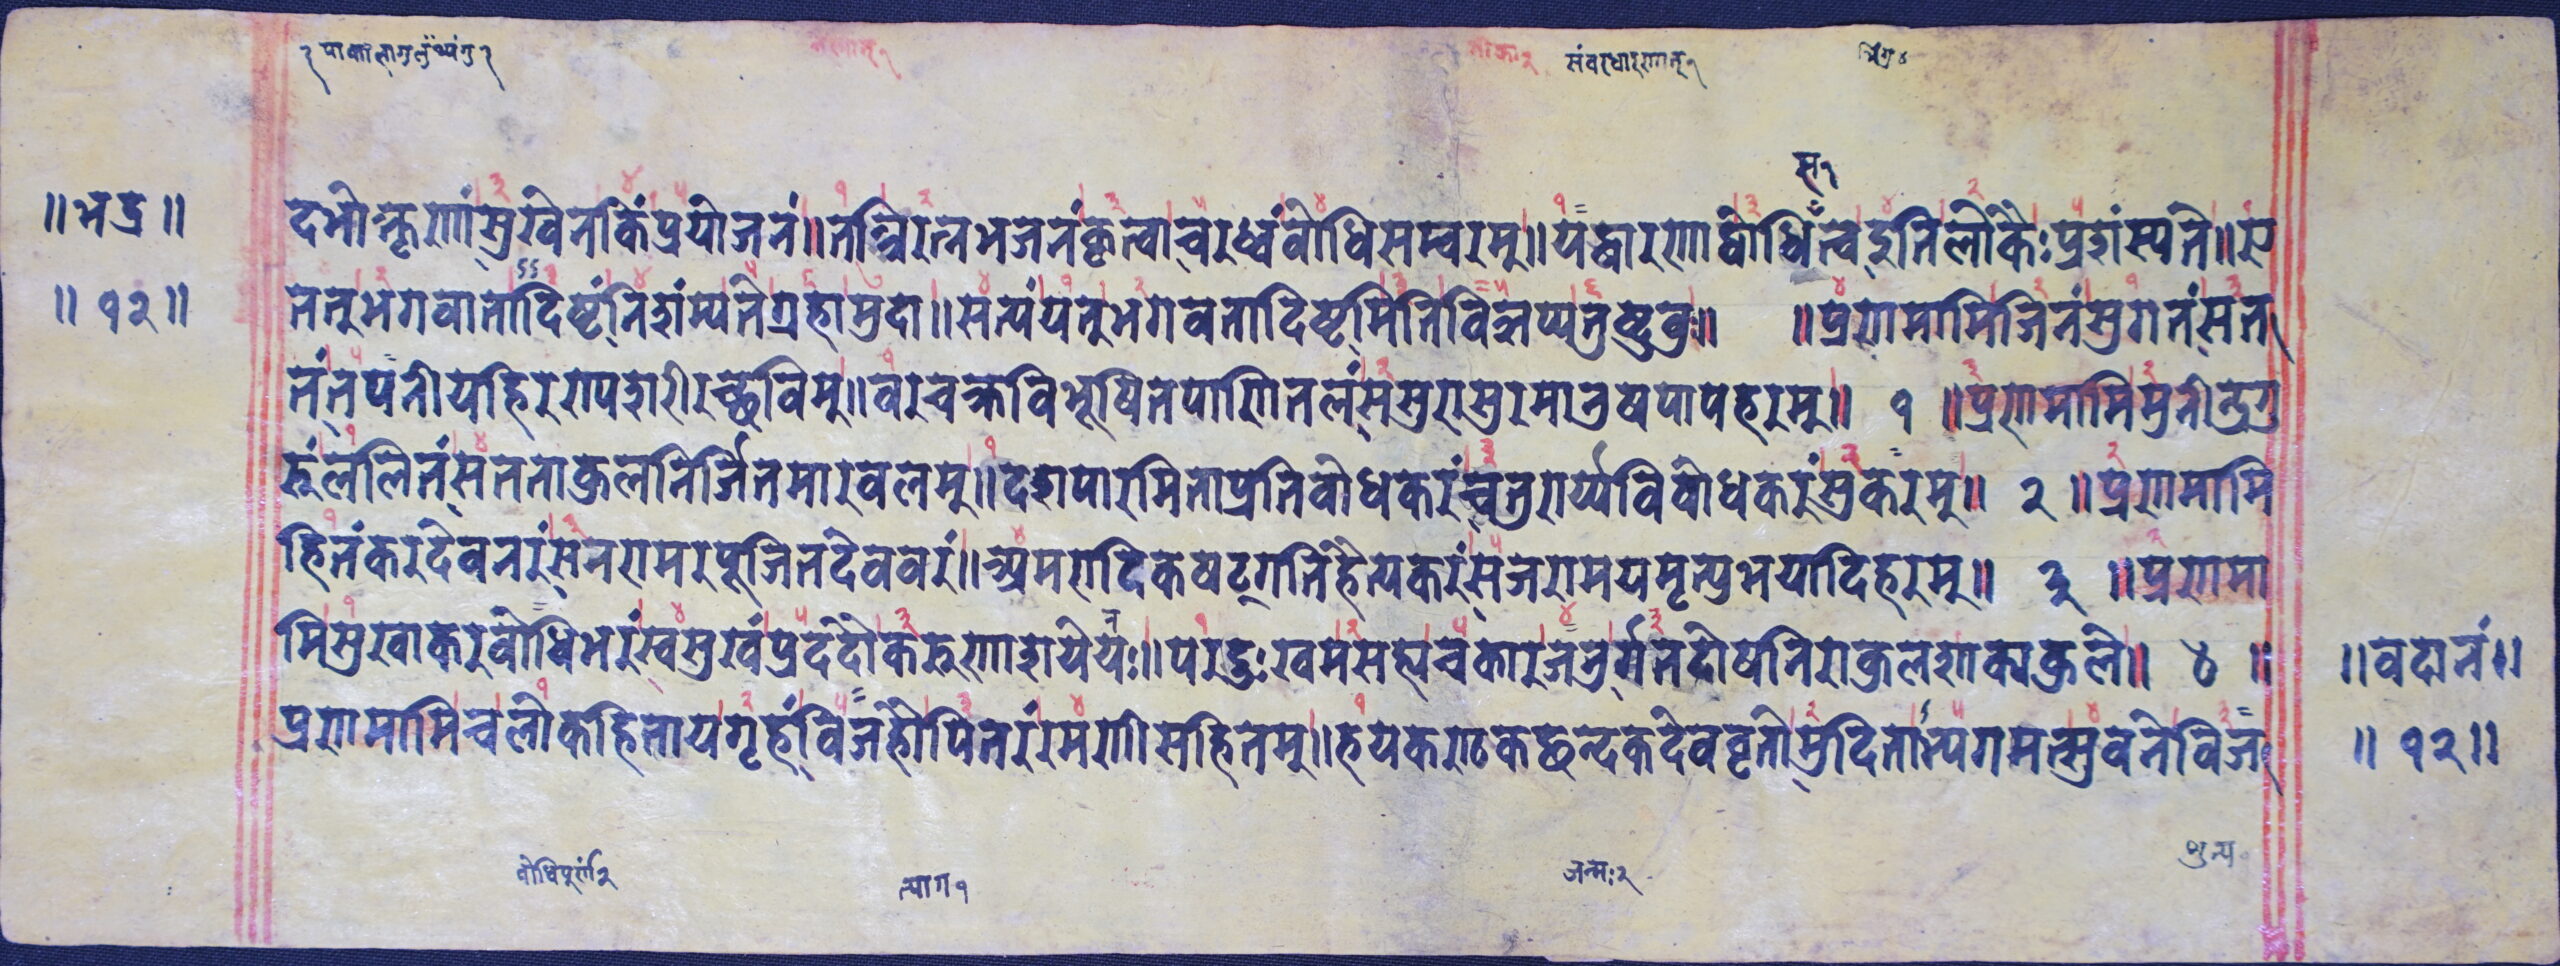 ॥भद्र॥
॥१२॥
दभीक्ष्णृणां सुखेन किं प्रयोजनं॥ तत्त्रिरत्नभजनं कृत्वा चरध्वं बोधिसम्वरम्॥ यद्धारणाद्बोधिसत्त्वइति लोकैः प्रशंस्यते॥ ए
तत्तु भगवातादिष्टं निशंम्यते ग्रहा मुदा॥ सत्यं यत्तु भगवतादिष्टमिति विज्ञप्य तुष्टुवुः॥ ॥प्रणमामि जिनं सुगतं सत
तं तपनीयहिरण्यशरीरच्छविम्॥ वरचक्रविभूषितपाणितलं ससुरासुरमानुषपापहरम्॥ १ ॥प्रणमामि मुनीन्द्रगु
रुं ललितं सतताकुलनिर्जितमारबलम्॥ दशपारमिताप्रतिबोधकरं चतुरार्य्यविबोधकरं सुकरम्॥ २ ॥प्रणमामि
हितंकरदेवनरं सनरामरपूजितदेववरं॥ अमरादिकषट्गतिहैत्यकरं सजरामयमृत्युभयादिहरम्॥ ३ ॥प्रणमा
मि सुखाकरबोधिभरं स्वसुखं प्रददौ करुणाशयेयः॥ परदुःखमसह्य चकार जनुर्गतदोषनिराकुलशाक्यकुले॥ ४ ॥
प्रणमामि च लोकहिताय गृहं विजहौ पितरं रमणीसहितम्॥ हयकण्ठकछन्दकदेववृतो मुदितान्यगमत्सुवने विज
॥वदानं॥
॥१२॥
बोधिपूर्ण२
त्याग१
जन्मः२